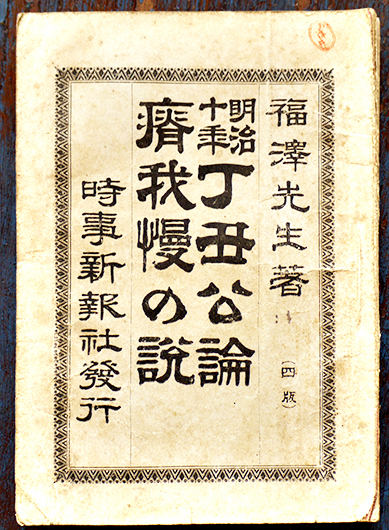 福澤先生著
(四版)
明治十年
丁丑公論
瘠我慢の説
時事新報社發行